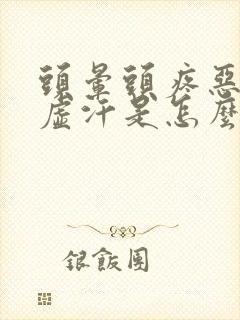 頭暈頭疼惡
虛汗是怎麼
銀飯團